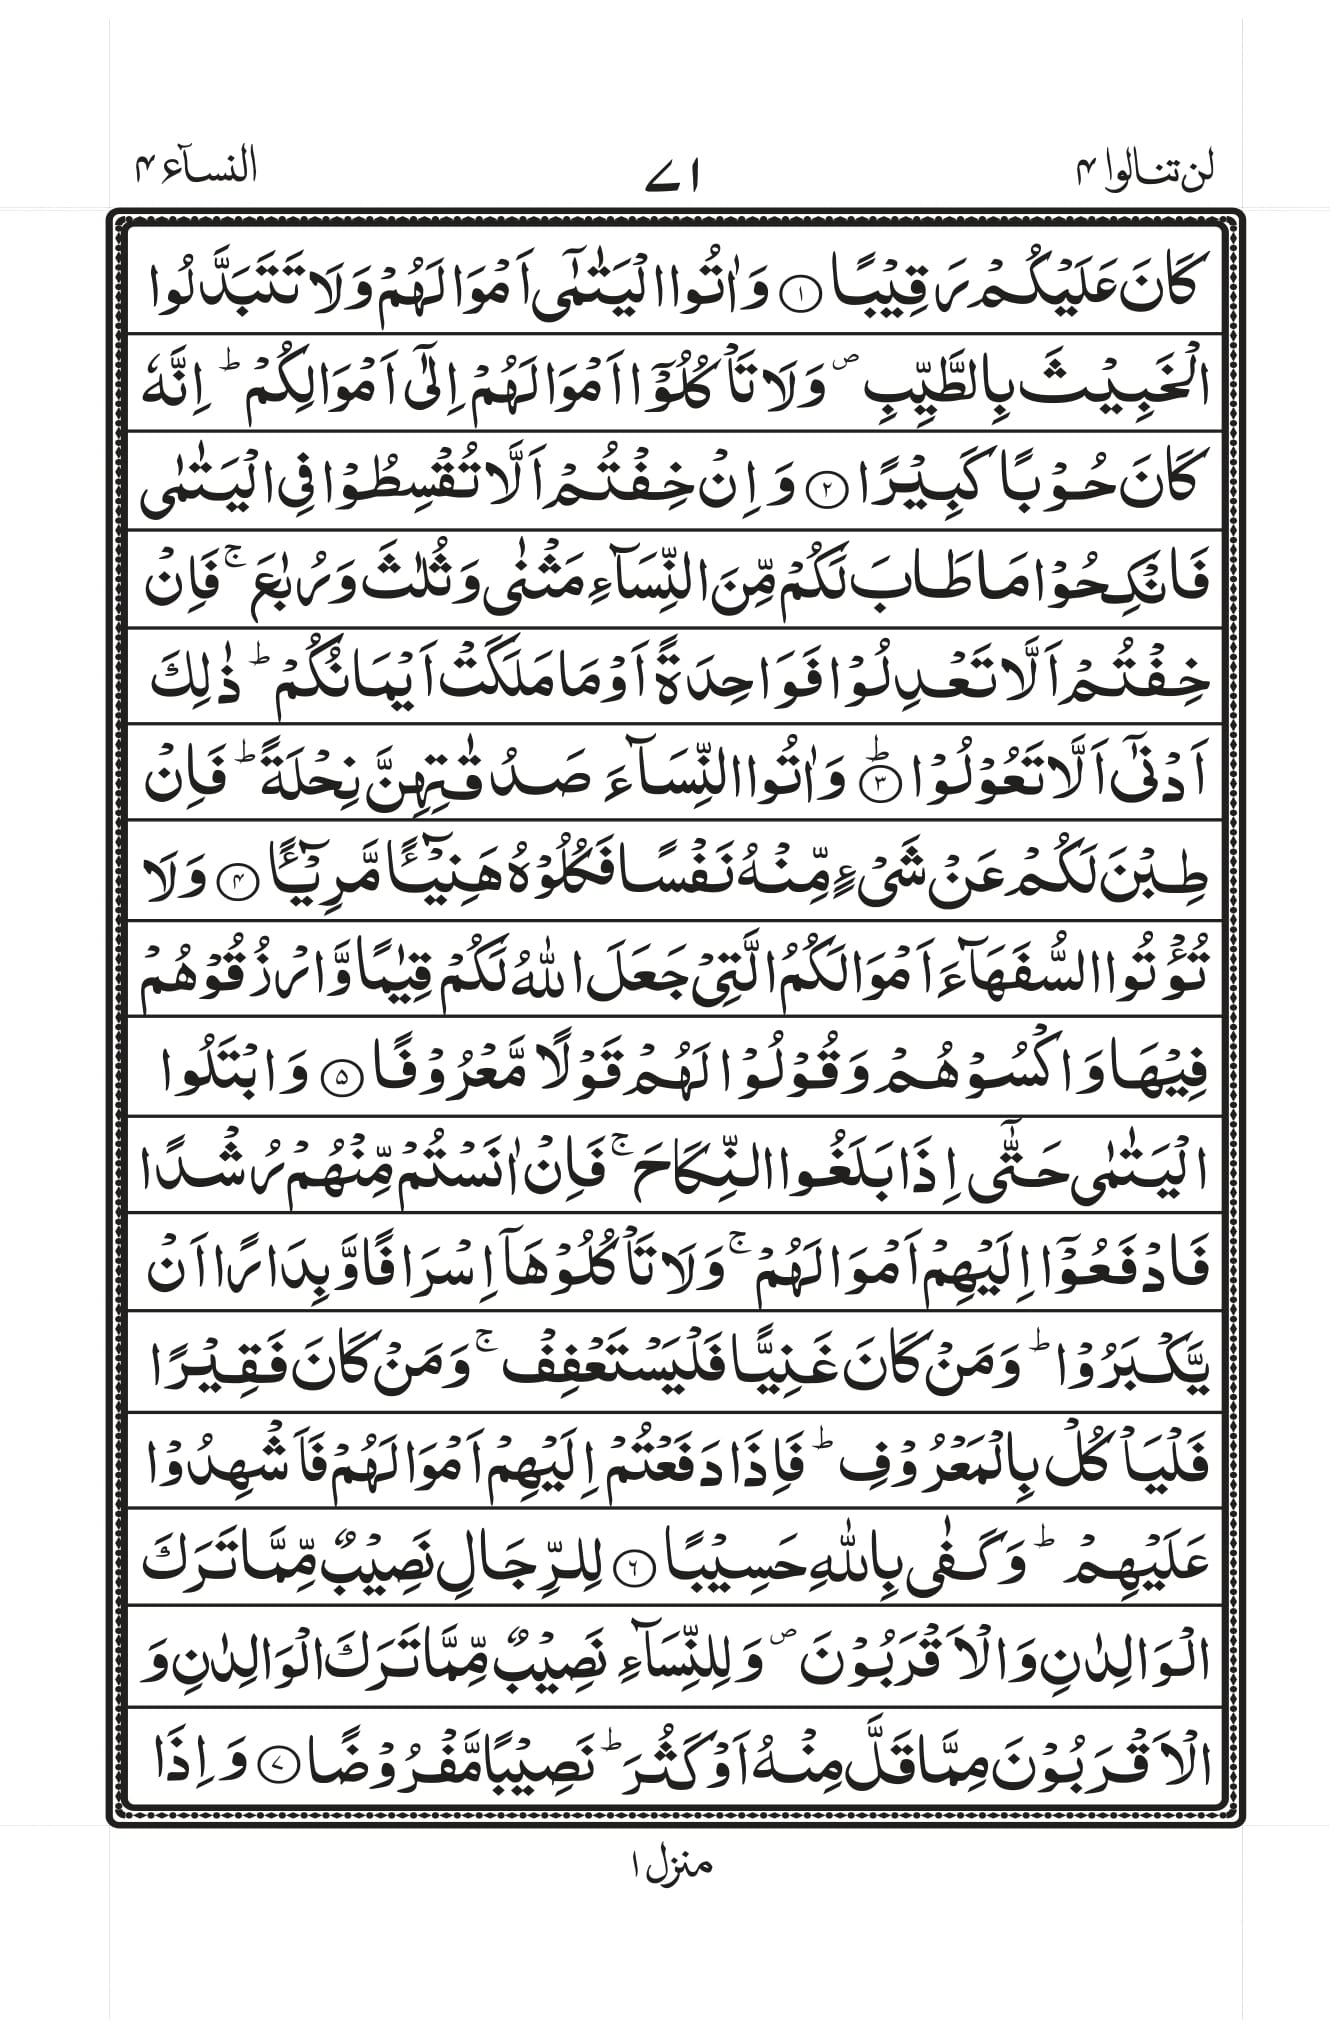 لن تنالوا ۴
۷۱
النسآء ۴
كَانَ عَلَيْكُمْ رَقِيْبًا ۝۱ وَاٰتُوا الْيَتٰمٰٓى اَمْوَالَهُمْ وَلَا تَتَبَدَّلُوا
الْخَبِيْثَ بِالطَّيِّبِ ۪ وَلَا تَاْكُلُوْٓا اَمْوَالَهُمْ اِلٰٓى اَمْوَالِكُمْ ؕ اِنَّهٗ
كَانَ حُوْبًا كَبِيْرًا ۝۲ وَاِنْ خِفْتُمْ اَلَّا تُقْسِطُوْا فِى الْيَتٰمٰى
فَانْكِحُوْا مَا طَابَ لَكُمْ مِّنَ النِّسَآءِ مَثْنٰى وَثُلٰثَ وَرُبٰعَ ۚ فَاِنْ
خِفْتُمْ اَلَّا تَعْدِلُوْا فَوَاحِدَةً اَوْ مَا مَلَكَتْ اَيْمَانُكُمْ ؕ ذٰلِكَ
اَدْنٰٓى اَلَّا تَعُوْلُوْا ؕ۝۳ وَاٰتُوا النِّسَآءَ صَدُقٰتِهِنَّ نِحْلَةً ؕ فَاِنْ
طِبْنَ لَكُمْ عَنْ شَىْءٍ مِّنْهُ نَفْسًا فَكُلُوْهُ هَنِيْٓـًٔا مَّرِيْٓـًٔا ۝۴ وَلَا
تُؤْتُوا السُّفَهَآءَ اَمْوَالَكُمُ الَّتِىْ جَعَلَ اللّٰهُ لَكُمْ قِيٰمًا وَّارْزُقُوْهُمْ
فِيْهَا وَاكْسُوْهُمْ وَقُوْلُوْا لَهُمْ قَوْلًا مَّعْرُوْفًا ۝۵ وَابْتَلُوا
الْيَتٰمٰى حَتّٰٓى اِذَا بَلَغُوا النِّكَاحَ ۚ فَاِنْ اٰنَسْتُمْ مِّنْهُمْ رُشْدًا
فَادْفَعُوْٓا اِلَيْهِمْ اَمْوَالَهُمْ ۚ وَلَا تَاْكُلُوْهَآ اِسْرَافًا وَّبِدَارًا اَنْ
يَّكْبَرُوْا ؕ وَمَنْ كَانَ غَنِيًّا فَلْيَسْتَعْفِفْ ۚ وَمَنْ كَانَ فَقِيْرًا
فَلْيَاْكُلْ بِالْمَعْرُوْفِ ؕ فَاِذَا دَفَعْتُمْ اِلَيْهِمْ اَمْوَالَهُمْ فَاَشْهِدُوْا
عَلَيْهِمْ ؕ وَكَفٰى بِاللّٰهِ حَسِيْبًا ۝۶ لِلرِّجَالِ نَصِيْبٌ مِّمَّا تَرَكَ
الْوَالِدٰنِ وَالْاَقْرَبُوْنَ ۪ وَلِلنِّسَآءِ نَصِيْبٌ مِّمَّا تَرَكَ الْوَالِدٰنِ وَ
الْاَقْرَبُوْنَ مِمَّا قَلَّ مِنْهُ اَوْ كَثُرَ ؕ نَصِيْبًا مَّفْرُوْضًا ۝۷ وَاِذَا
منزل ۱